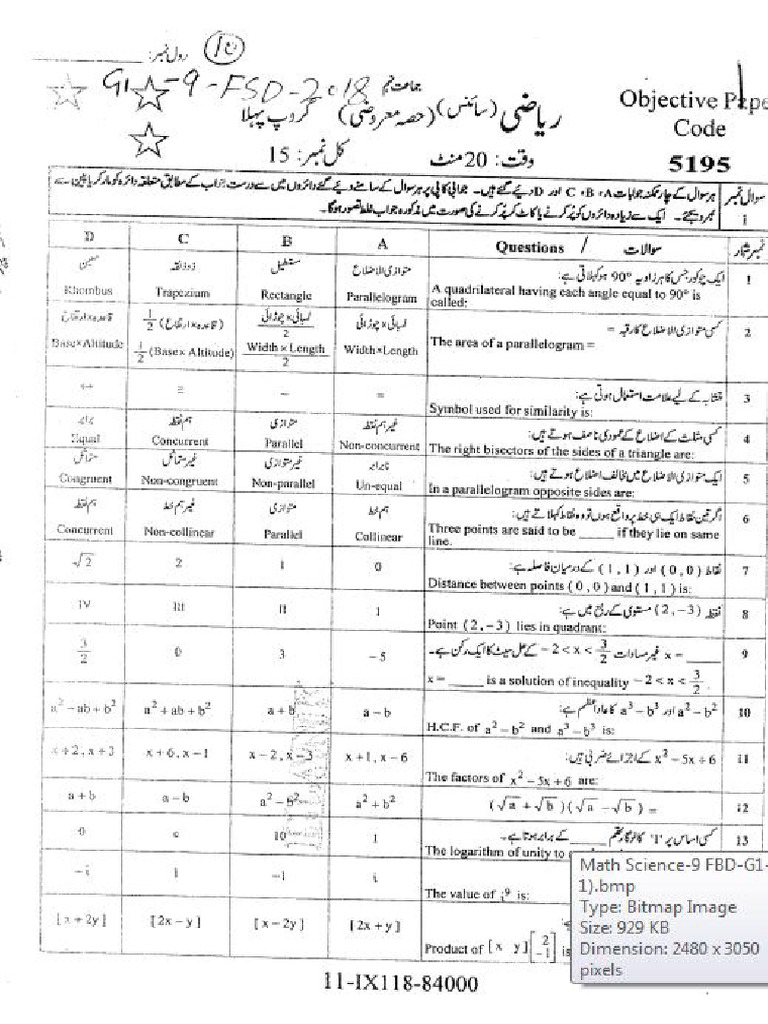 رول نمبر: ________ 10
G1-9-FSD-2018 جماعت نہم
ریاضی (سائنس) (حصہ معروضی) گروپ پہلا
Objective Pape
Code
5195
وقت: 20 منٹ
کل نمبر: 15
سوال نمبر 1
ہر سوال کے چار ممکنہ جوابات A، B، C اور D دیئے گئے ہیں۔ جوابی کاپی پر ہر سوال کے سامنے دیئے گئے دائروں میں سے درست جواب کے مطابق متعلقہ دائرہ کو مارکر یا پین سے
بھر دیجئے۔ ایک سے زیادہ دائروں کو پُر کرنے یا کاٹ کر پُر کرنے کی صورت میں مذکورہ جواب غلط تصور ہوگا۔
D C B A Questions / سوالات نمبر شمار
معین ذوذنقہ مستطیل متوازی الاضلاع ایک چوکور جس کا ہر زاویہ 90° ہو کہلاتی ہے: 1
Rhombus Trapezium Rectangle Parallelogram A quadrilateral having each angle equal to 90° is
called:
قاعدہ×ارتفاع 1/2 (قاعدہ×ارتفاع) لمبائی×چوڑائی/2 لمبائی×چوڑائی کسی متوازی الاضلاع کا رقبہ = 2
Base×Altitude 1/2 (Base×Altitude) Width×Length/2 Width×Length The area of a parallelogram =
↔ ≅ ~ = تشابہ کے لیے علامت استعمال ہوتی ہے: 3
Symbol used for similarity is:
برابر ہم نقطہ متوازی غیر ہم نقطہ کسی مثلث کے اضلاع کے عمودی ناصف ہوتے ہیں: 4
Equal Concurrent Parallel Non-concurrent The right bisectors of the sides of a triangle are:
متماثل غیر متماثل غیر متوازی نابرابر ایک متوازی الاضلاع میں مخالف اضلاع ہوتے ہیں: 5
Congruent Non-congruent Non-parallel Un-equal In a parallelogram opposite sides are:
ہم نقطہ غیر ہم خط متوازی ہم خط اگر تین نقاط ایک ہی خط پر واقع ہوں تو وہ نقاط کہلاتے ہیں: 6
Concurrent Non-collinear Parallel Collinear Three points are said to be _____ if they lie on same
line.
√2 2 1 0 نقاط (0,0) اور (1,1) کے درمیان فاصلہ ہے: 7
Distance between points (0,0) and (1,1) is:
IV III II I نقطہ (2,−3) مستوی کے ربع میں ہے: 8
Point (2,−3) lies in quadrant:
3/2 0 3 −5 x = _____ غیر مساوات −2 < x < 3/2 کے حل سیٹ کا ایک رکن ہے۔ 9
x = _____ is a solution of inequality −2 < x < 3/2.
a² − ab + b² a² + ab + b² a + b a − b a² − b² اور a³ − b³ کا عاد اعظم ہے: 10
H.C.F. of a² − b² and a³ − b³ is:
x + 2, x + 3 x + 6, x − 1 x − 2, x − 3 x + 1, x − 6 x² − 5x + 6 کے اجزائے ضربی ہیں: 11
The factors of x² − 5x + 6 are:
a + b a − b a² − b² a² + b² (√a + √b)(√a − √b) = 12
0 e 10 1 کسی اساس پر '1' کا لوگارتھم _____ کے برابر ہوتا ہے۔ 13
The logarithm of unity to
−i 1 −1 i The value of i⁹ is:
[x + 2y] [2x − y] [x − 2y] [2x + y] Product of [x y] [2 −1] is
Math Science-9 FBD-G1-
1).bmp
Type: Bitmap Image
Size: 929 KB
Dimension: 2480 x 3050
pixels
11-IX118-84000